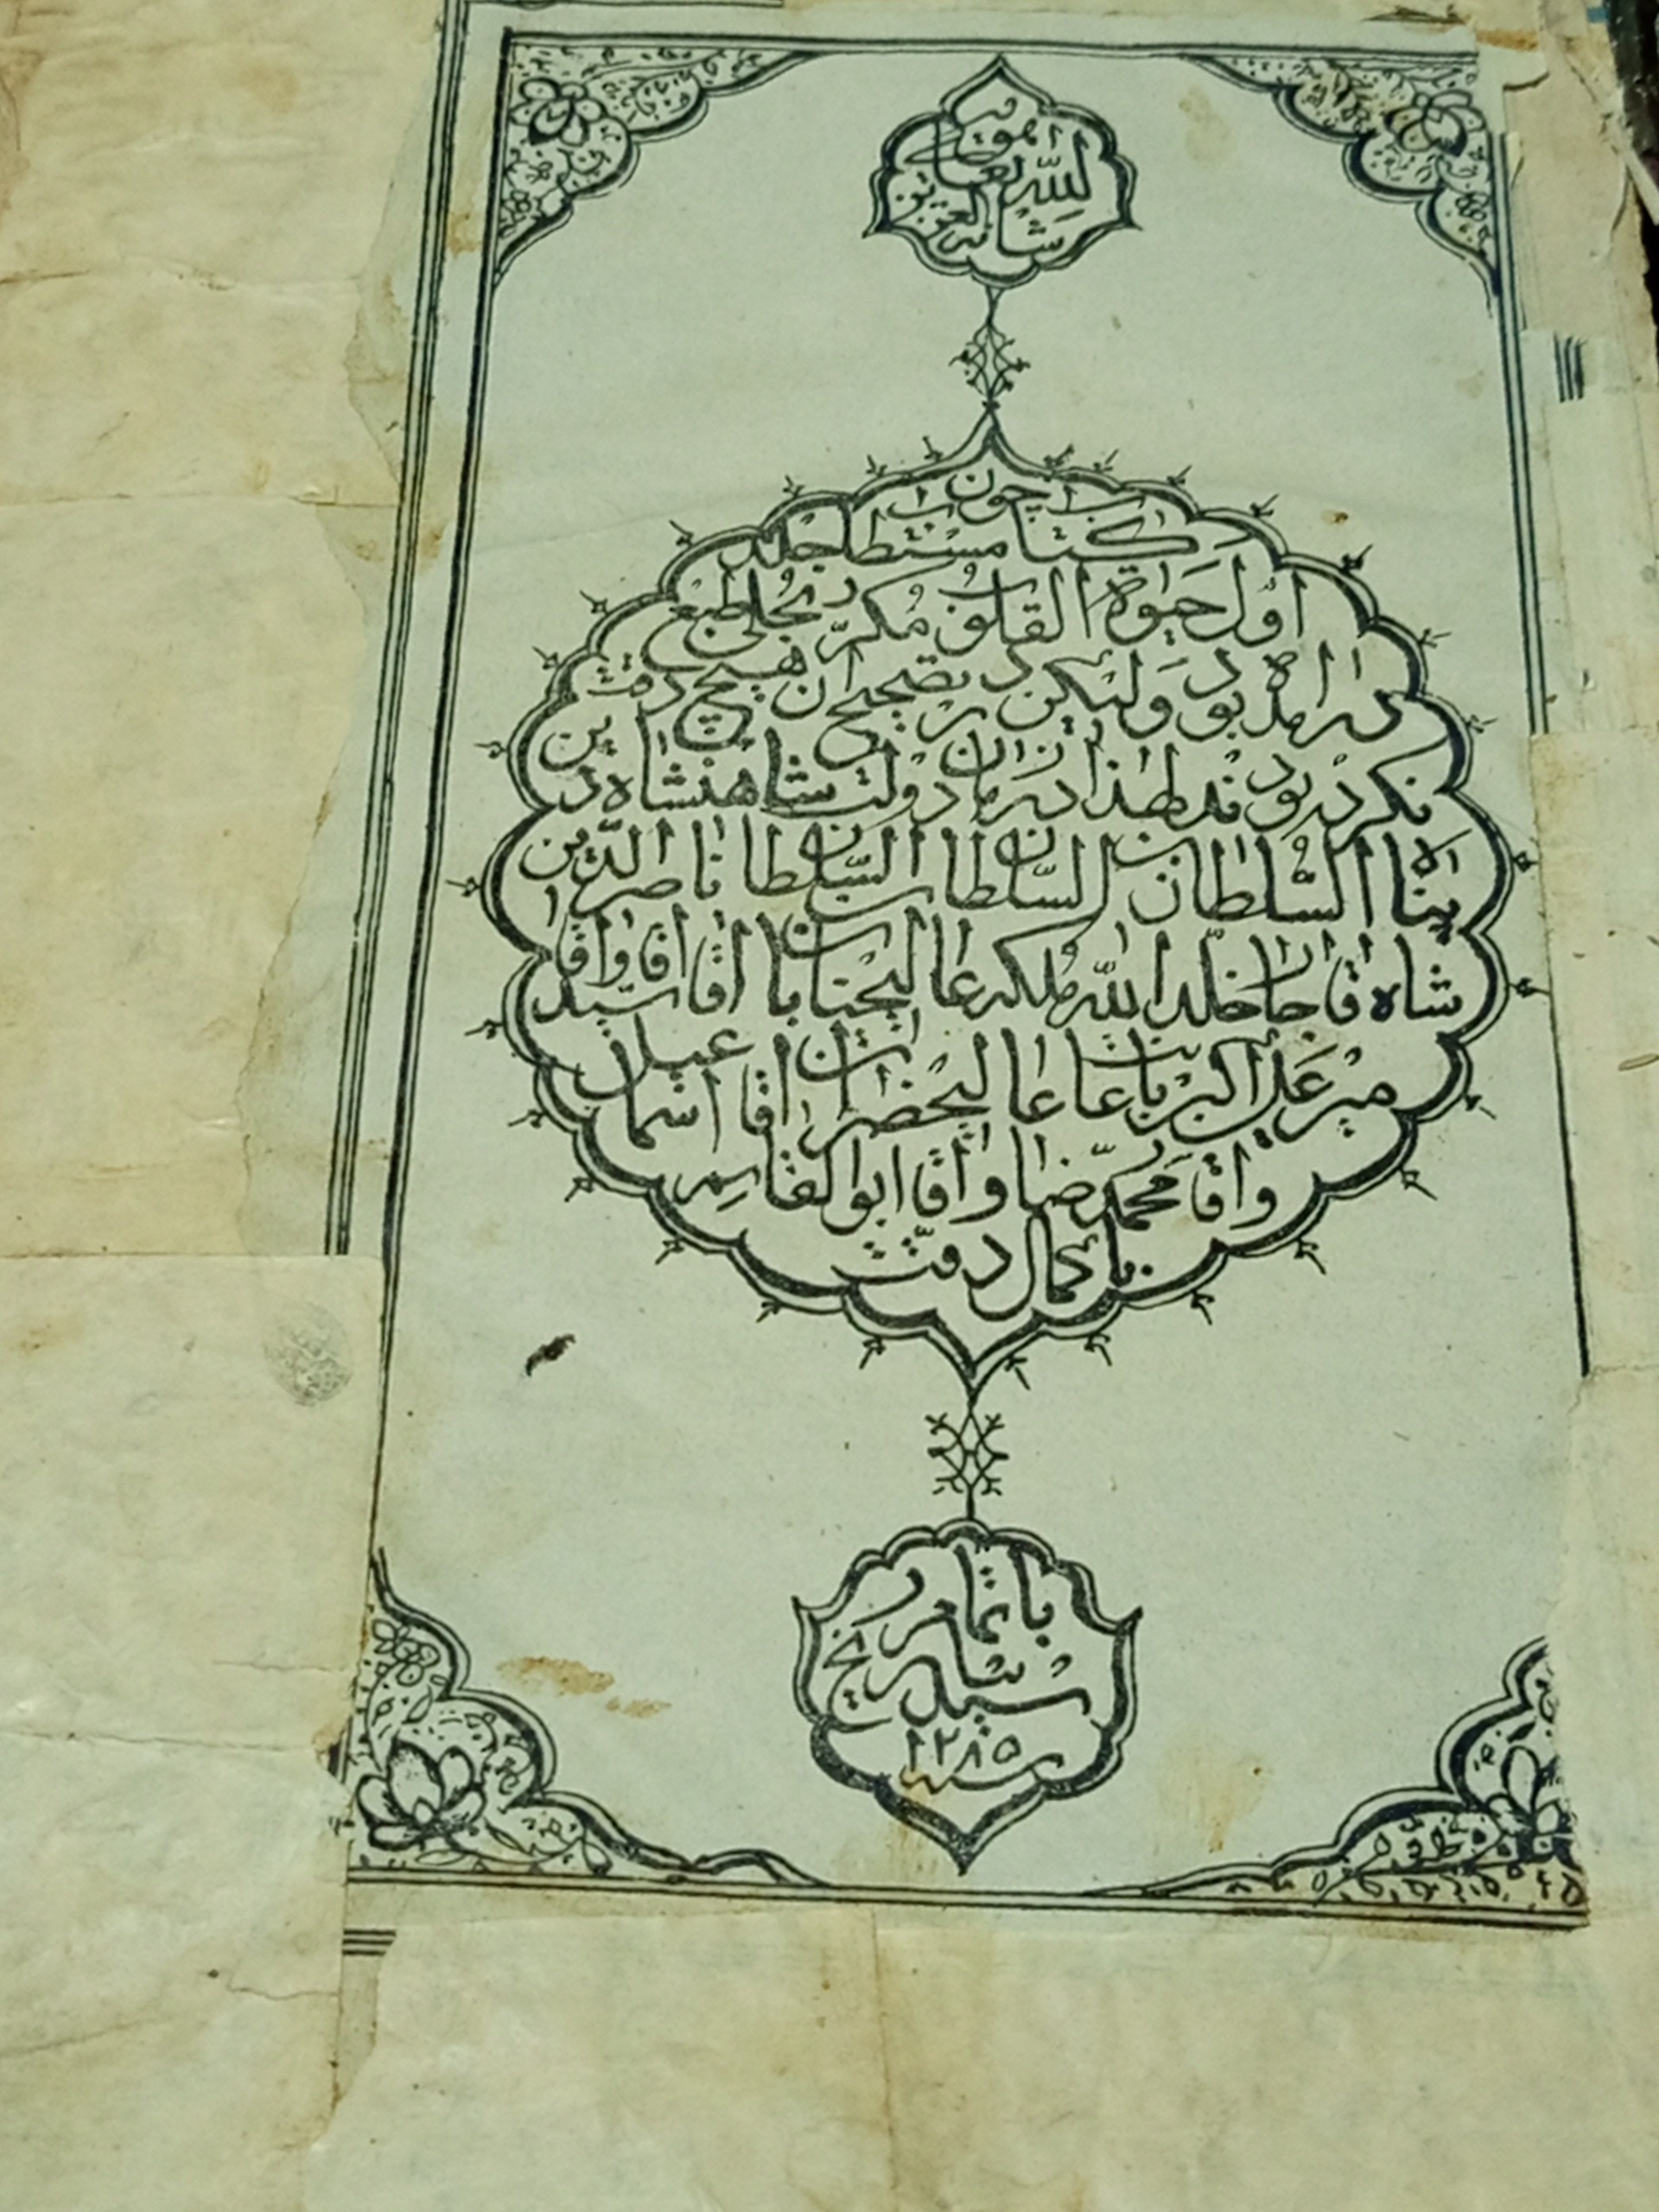 هو
الله تعالی
شانه العزیز
چون کتاب
مستطاب جلد
اول حیوة القلوب مکرر بحلی طبع
در امده بود ولیکن در تصحیح ان هیچ دقت
نکرده بودند لهذا در زمان دولت شاهنشاه دین
پناه السلطان بن السلطان بن السلطان ناصر الدین
شاه قاجار خلد الله ملکه عالیجنابان اقا و اقا سید
میر علی اکبر عالیحضرات اقا اسمعیل
و اقا محمد رضا و اقا ابوالقاسم
با کمال دقت
باتمام
رسید بتاریخ
سنه ۱۲۸۵